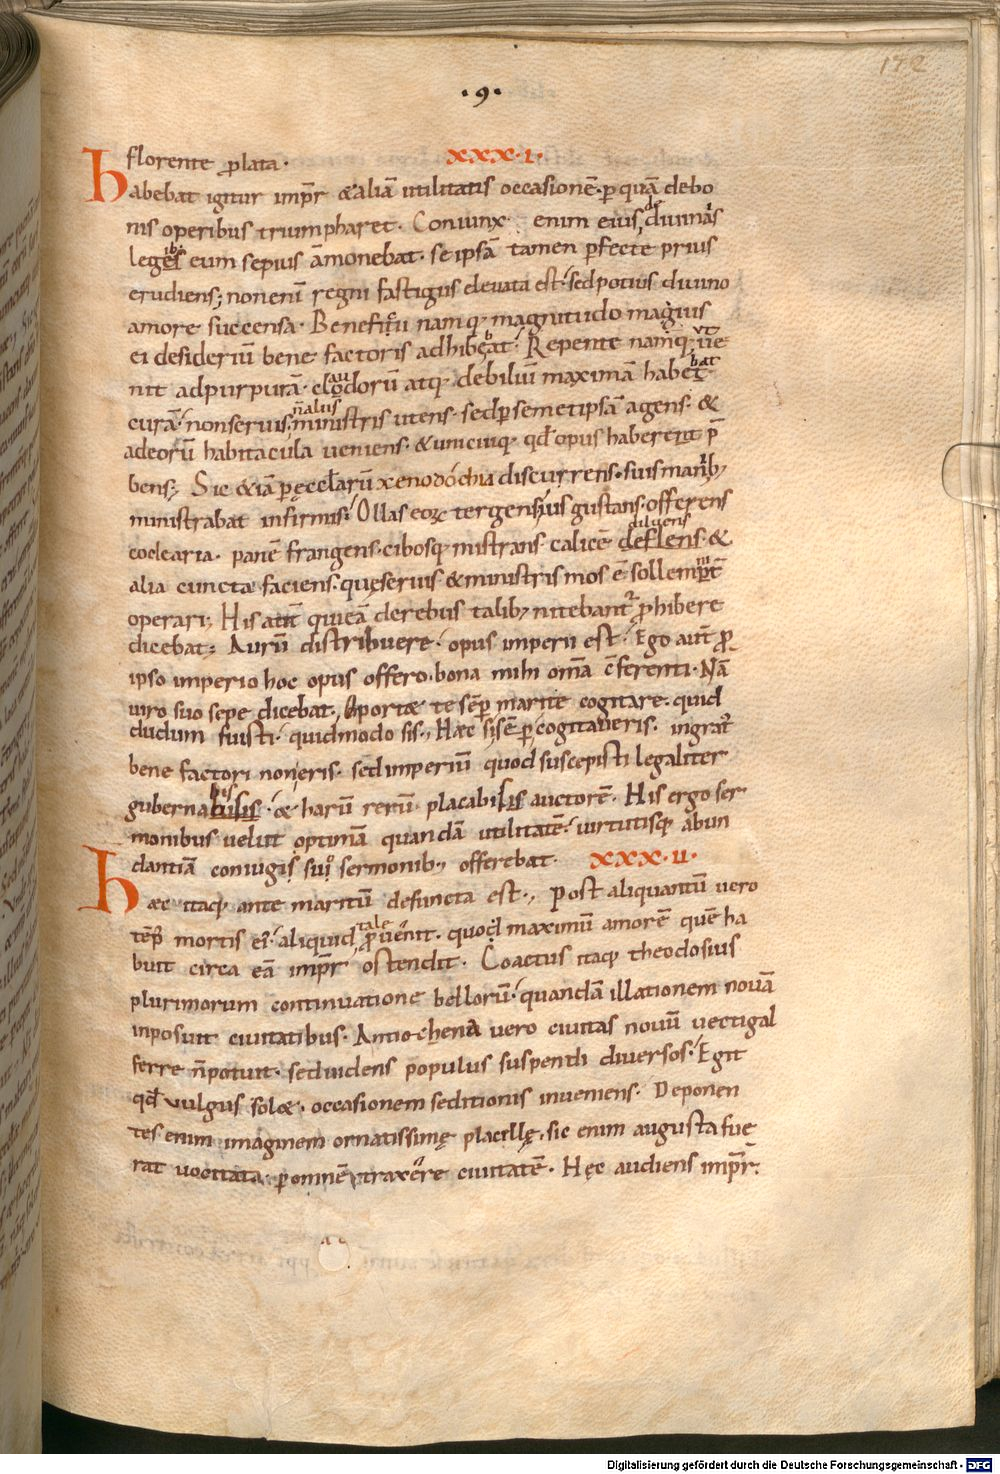 172
·9·
florente plata· xxx·i·
Habebat igitur impr̄ & aliā utilitatis occasionē· p quā de bo
nis operibus triumpharet· Coniunx enim eius de diuinis
legibus eum sepius āmonebat· se ipsā tamen pfecte prius
erudiens; non enī regni fastigiis eleuata est· sed potius diuino
amore succensa· Beneficii namq· magnitudo maḡius
ei desideriū bene factoris adhibebat· Repente namq· ut ue
nit ad purpurā· claudorū atq· debiliū maximā habebat
curā· non seruis· n̄ aliis ministris utens· sed p semetipsā agens· &
ad eorū habitacula ueniens· & unicuiq· qd̄ opus haberent p̄
bens; Sic & iā p ęcclarū xenodochia discurrens· suis manib;
ministrabat infirmis· Ollas eoꝝ tergens· ius gustans· offerens
coclearia· panē frangens· cibosq· mistrans· calicē diluens &
alia cuncta faciens· quę seruis & ministris mos ē sollempt̄
operari; His aut̄ qui eā de rebus talib; nitebant̄ phibere
dicebat; Aurū distribuere· opus imperii est· Ego aut̄ p
ipso imperio hoc opus offero· bona mihi om̄a c̄ferenti· Nā
uiro suo sepe dicebat; Oportæ te sēp marite cogitare· quid
dudum fuisti· quid modo sis; Hæc si sēp cogitaueris· ingrat̄
bene factori non eris· sed imperiū quod suscepisti legaliter
gubernabis· & harū rerū placabilis auctorē· His ergo ser
monibus uelut optimā quandā utilitatē· uirtutisq· abun
dantiā coniugis sui sermonib; offerebat· xxx·ii·
Hæc itaq· ante maritū defuncta est; Post aliquantū uero
tēp mortis ei· aliquid tale puenit· quod maximū amorē quē ha
buit circa eā impr̄ ostendit· Coactus itaq· theodosius
plurimorum continuatione bellorū· quandā illationem nouā
inposuit ciuitatibus· Antiochena uero ciuitas nouū uectigal
ferre n̄ potuit· sed uidens populus suspendi diuersos· Egit
qd̄ uulgus solæ· occasionem seditionis inueniens· Deponen
tes enim imaginem ornatissimę placillę· sic enim augusta fue
rat uocitata· p omnē traxere ciuitatē· Hęc audiens impr̄·
Digitalisierung gefördert durch die Deutsche Forschungsgemeinschaft - DFG